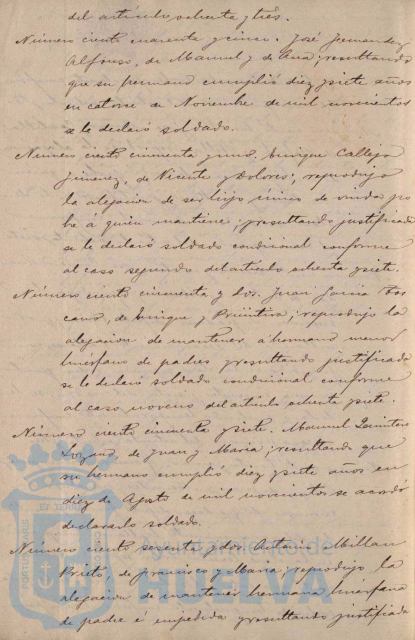 del artículo ochenta y tres.
Número ciento cuarenta y cinco. José Fernandez
Alfonso, de Manuel y de Ana; resultando
que su hermano cumplió diez y siete años
en catorce de Noviembre de mil novecientos
se le declaró soldado.
Número ciento cincuenta y uno. Enrique Calleja
Jimenez, de Vicente y Dolores; reprodujo
la alegación de ser hijo único de viuda po
bre á quien mantiene, y resultando justificada
se le declaró soldado condicional conforme
al caso segundo del artículo ochenta y siete.
Número ciento cincuenta y dos. Juan García Tos
cano, de Enrique y Primitiva; reprodujo la
alegación de mantener a hermano menor
huérfano de padres y resultando justificada
se le declaró soldado condicional conforme
al caso noveno del artículo ochenta y siete.
Número ciento cincuenta y siete. Manuel Quintero
Lozano, de Juan y Maria; resultando que
su hermano cumplió diez y siete años en
diez de Agosto de mil novecientos se acordó
declararlo soldado.
Número ciento sesenta y dos. Antonio Millan
Prieto, de Francisco y Maria; reprodujo la
alegación de mantener hermana huerfana
de padre é impedida y resultando justificada
HUELVA